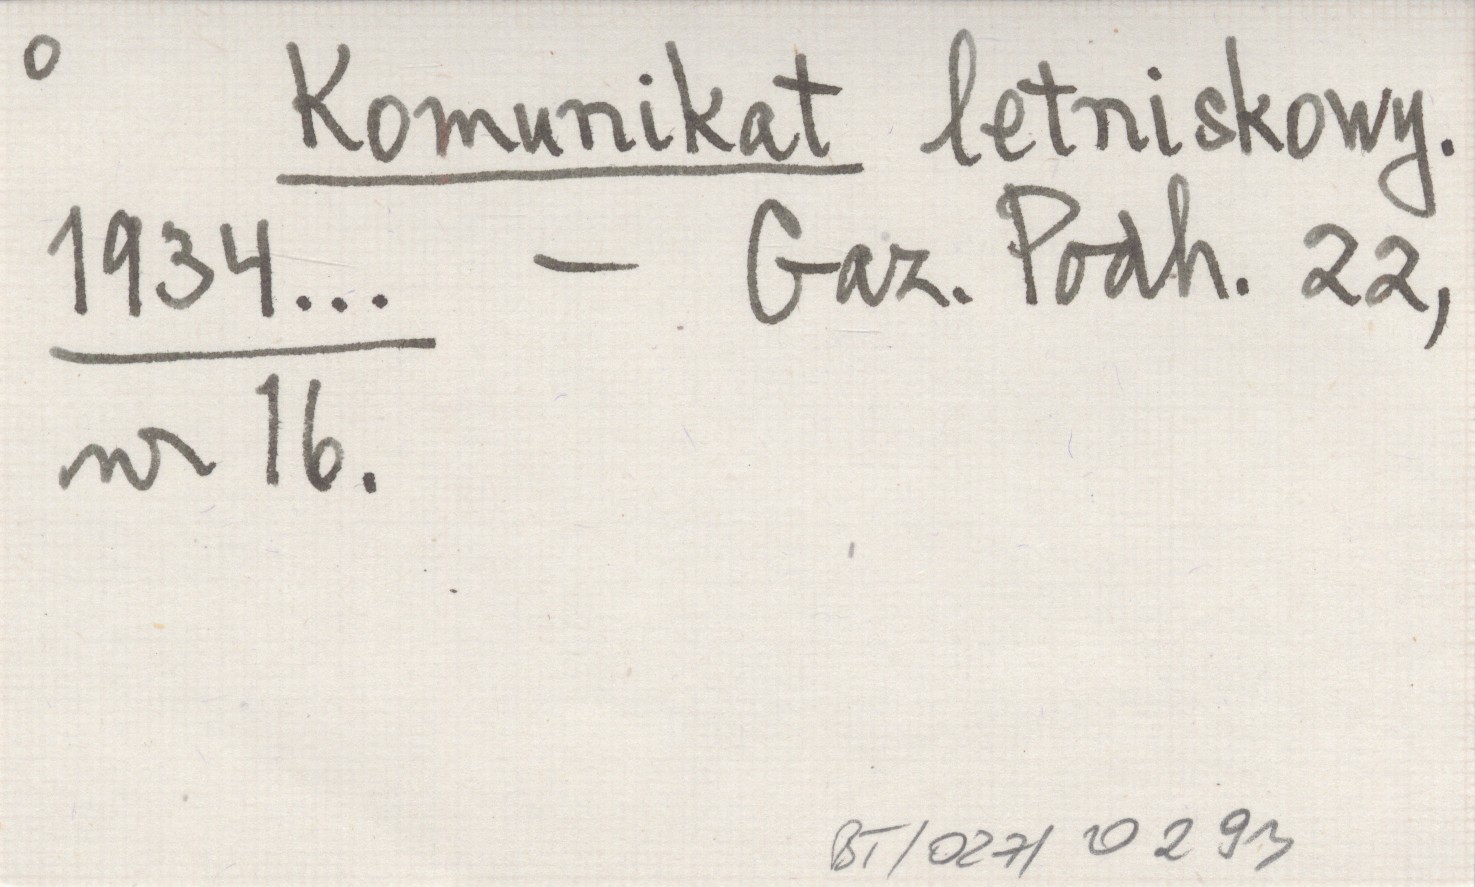 o Komunikat letniskowy.
1934... – Gaz. Podh. 22,
nr 16.
BT/0271 0293